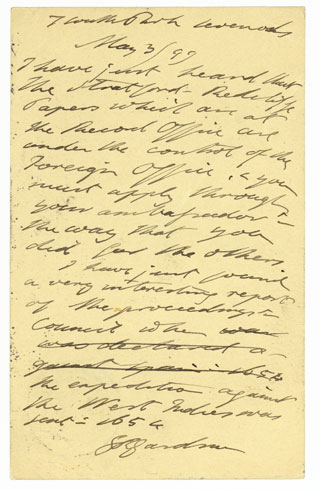 7 South Park Sevenoaks
May 3/97
I have just heard that
the Stratford-Redcliffe
Papers which are at
the Record Office are
under the control of the
Foreign Office, & you
must apply through
your ambassador in
the way that you
did for the others.
I have just found
a very interesting report
of the proceedings in
Council whe
was declared a-
1654
the expedition against
the West Indies was
sent in 1654
S R Gardiner